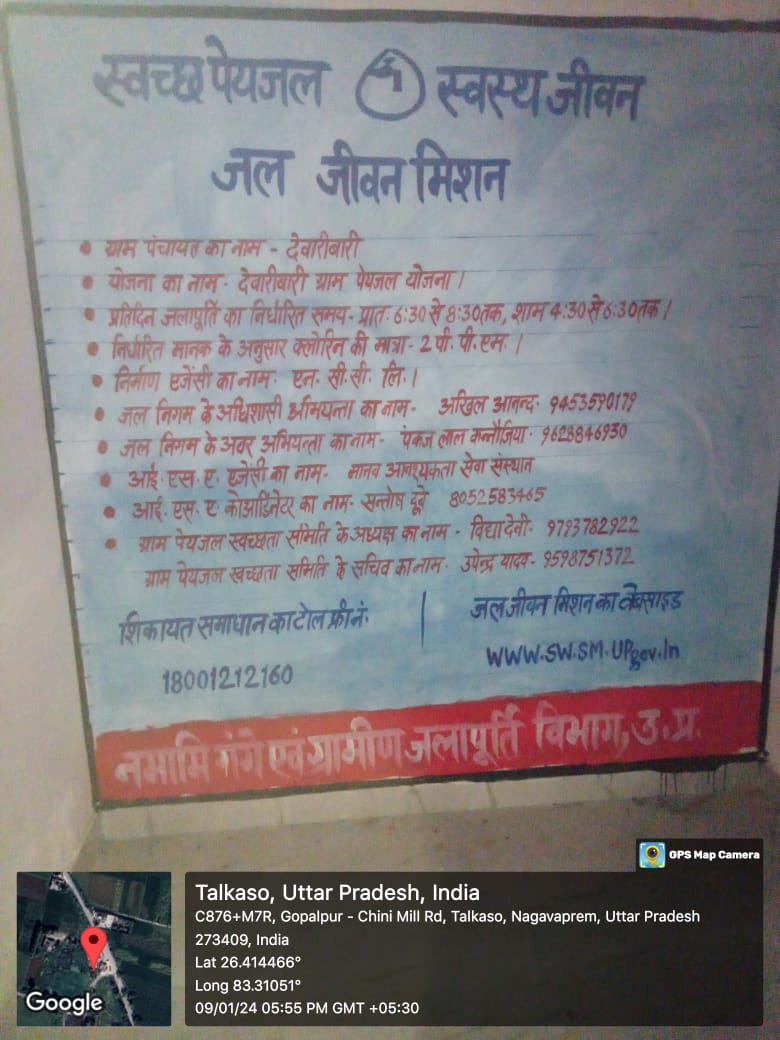 स्वच्छ पेयजल स्वस्थ जीवन
जल जीवन मिशन
• ग्राम पंचायत का नाम - देवारीबारी
• योजना का नाम - देवारीबारी ग्राम पेयजल योजना।
• प्रतिदिन जलापूर्ति का निर्धारित समय- प्रातः 6:30 से 8:30 तक, शाम 4:30 से 6:30 तक।
• निर्धारित मानक के अनुसार क्लोरिन की मात्रा - 2 पी. पी. एम.।
• निर्माण एजेंसी का नाम- एन. सी. सी. लि.।
• जल निगम के अधिशासी अभियन्ता का नाम- अखिल आनन्द- 9453590179
• जल निगम के अवर अभियन्ता का नाम- पंकज लाल कन्नौजिया- 9628846930
• आई. एस. ए. एजेंसी का नाम- मानव आवश्यकता सेवा संस्थान
• आई. एस. ए. कोआर्डिनेटर का नाम- सन्तोष दूबे 8052583465
• ग्राम पेयजल स्वच्छता समिति के अध्यक्ष का नाम - विद्या देवी- 9793782922
ग्राम पेयजल स्वच्छता समिति के सचिव का नाम- उपेन्द्र यादव- 9598751372
शिकायत समाधान का टोल फ्री नं.
18001212160
जल जीवन मिशन का वेबसाइड
WWW.SW.SM.UPgov.In
नमामि गंगे एवं ग्रामीण जलापूर्ति विभाग, उ.प्र.
GPS Map Camera
Google
Talkaso, Uttar Pradesh, India
C876+M7R, Gopalpur - Chini Mill Rd, Talkaso, Nagavaprem, Uttar Pradesh
273409, India
Lat 26.414466°
Long 83.31051°
09/01/24 05:55 PM GMT +05:30